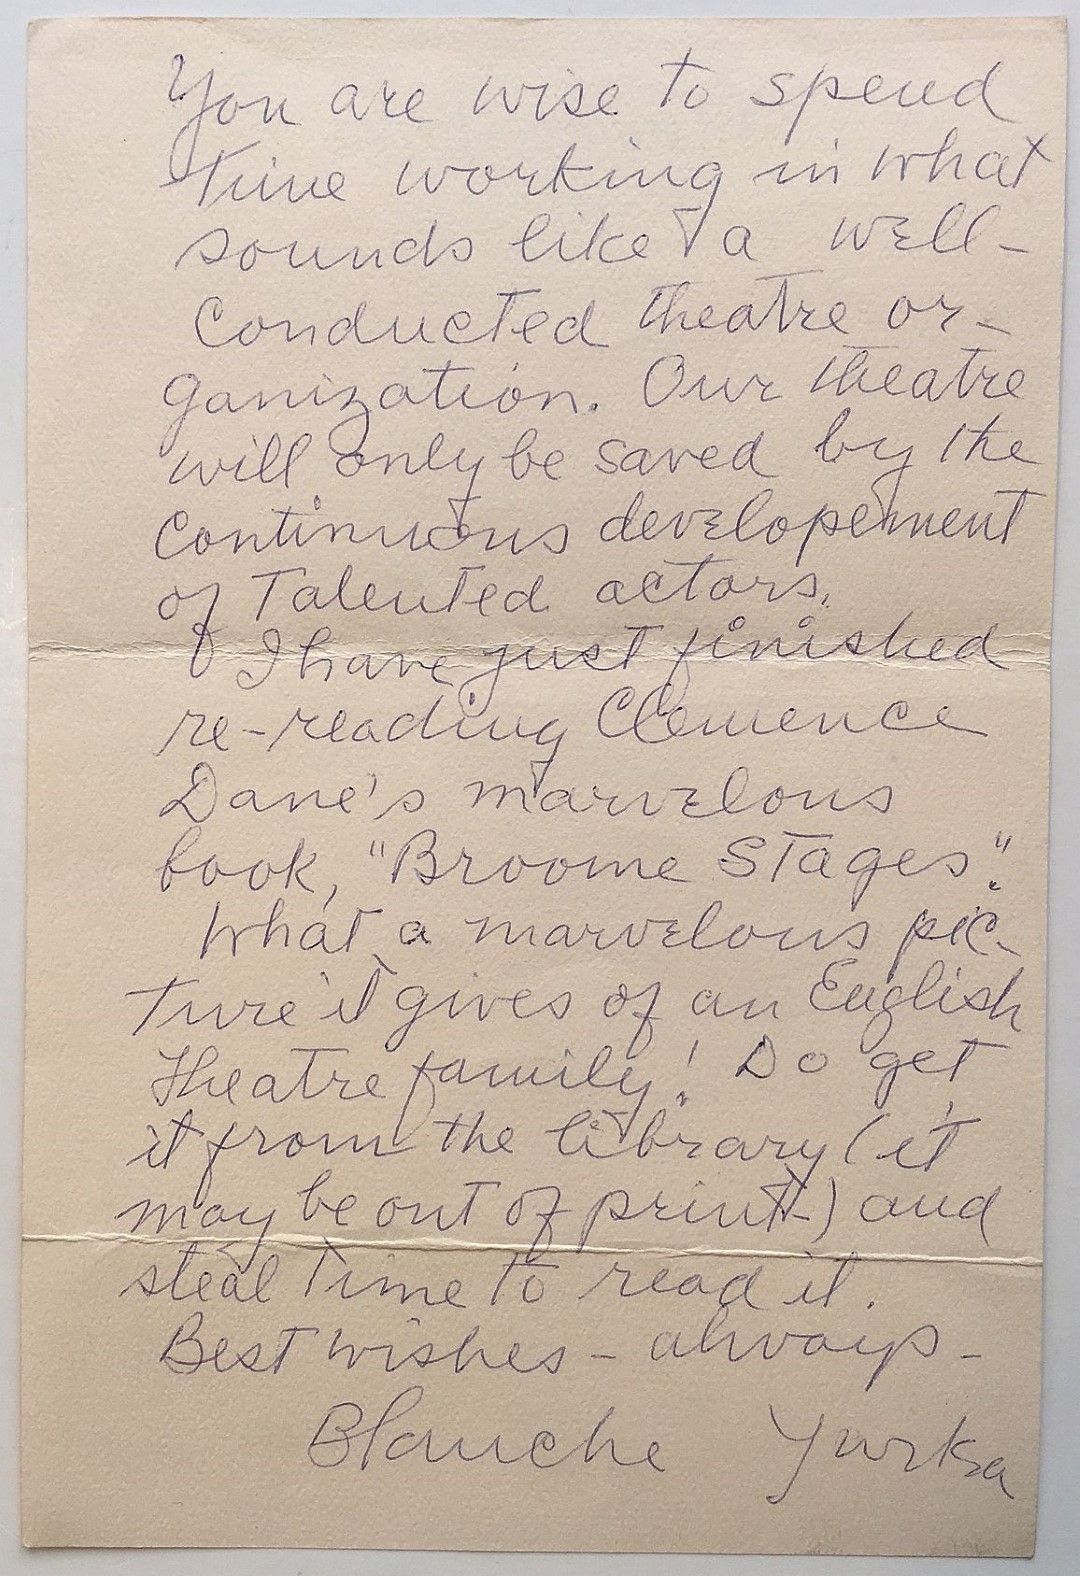 You are wise to spend
time working in what
sounds like a well-
conducted theatre or-
ganization. Our theatre
will only be saved by the
continuous developement
of talented actors.
I have just finished
re-reading Clemence
Dane's marvelous
book, "Broome Stages".
What a marvelous pic-
ture it gives of an English
theatre family! Do get
it from the library (it
may be out of print-) and
steal time to read it.
Best wishes - always -
Blanche Yurka